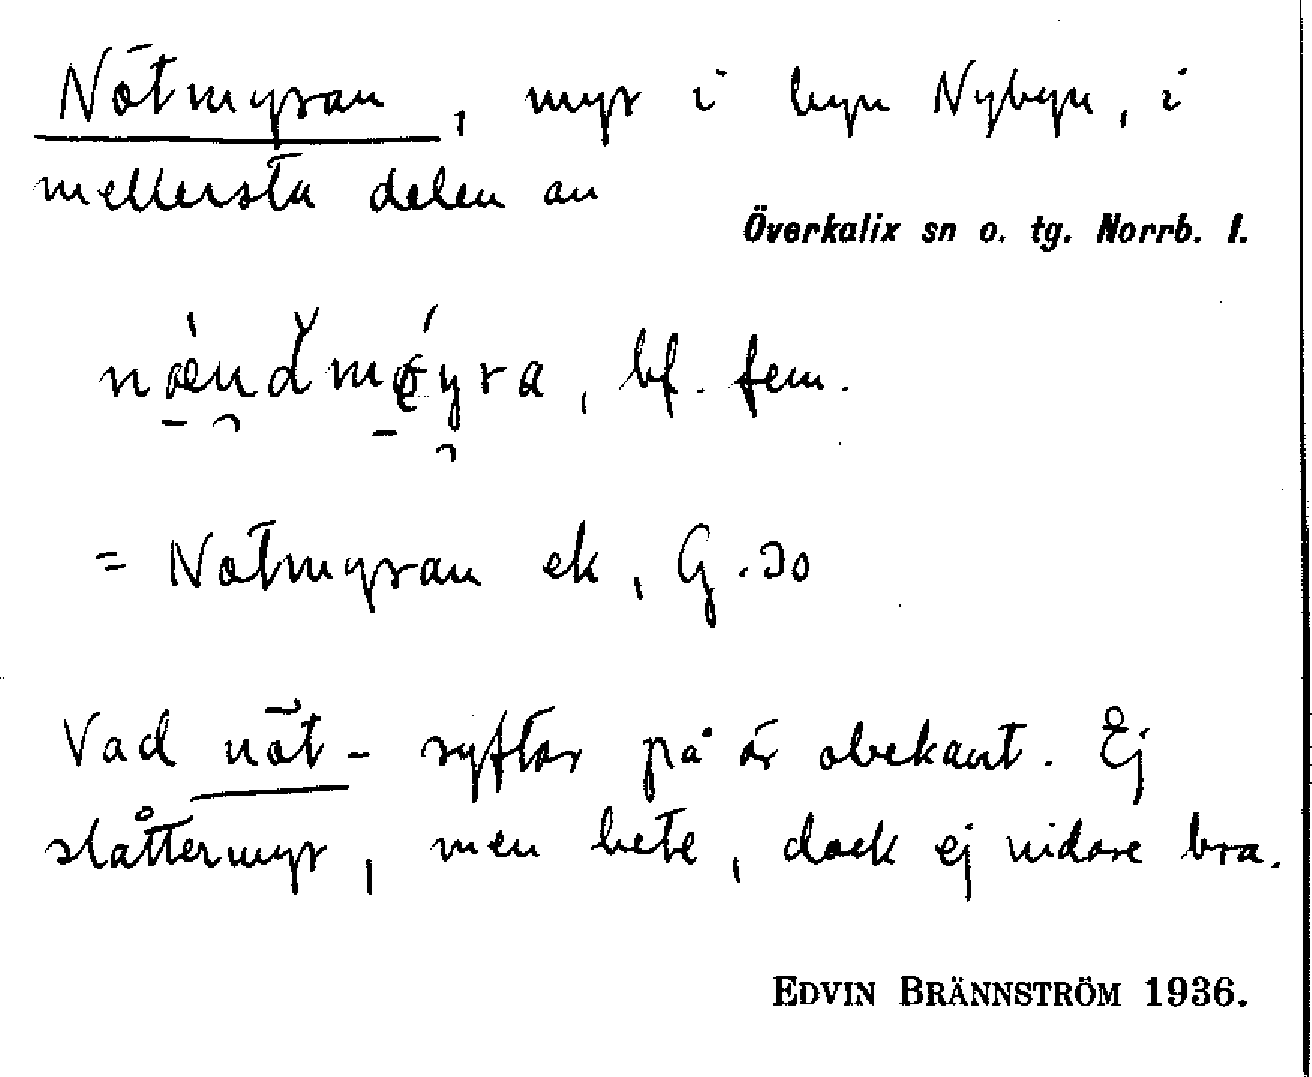 Nötmyran, myr i byn Nybyn, i
mellersta delen av
Överkalix sn o. tg. Norrb. l.
bf. fem.
= Notmyran ek, G.30
Vad nöt- syftar på är obekant. Ej
slåttermyr, men bete, dock ej vidare bra.
EDVIN BRÄNNSTRÖM 1936.